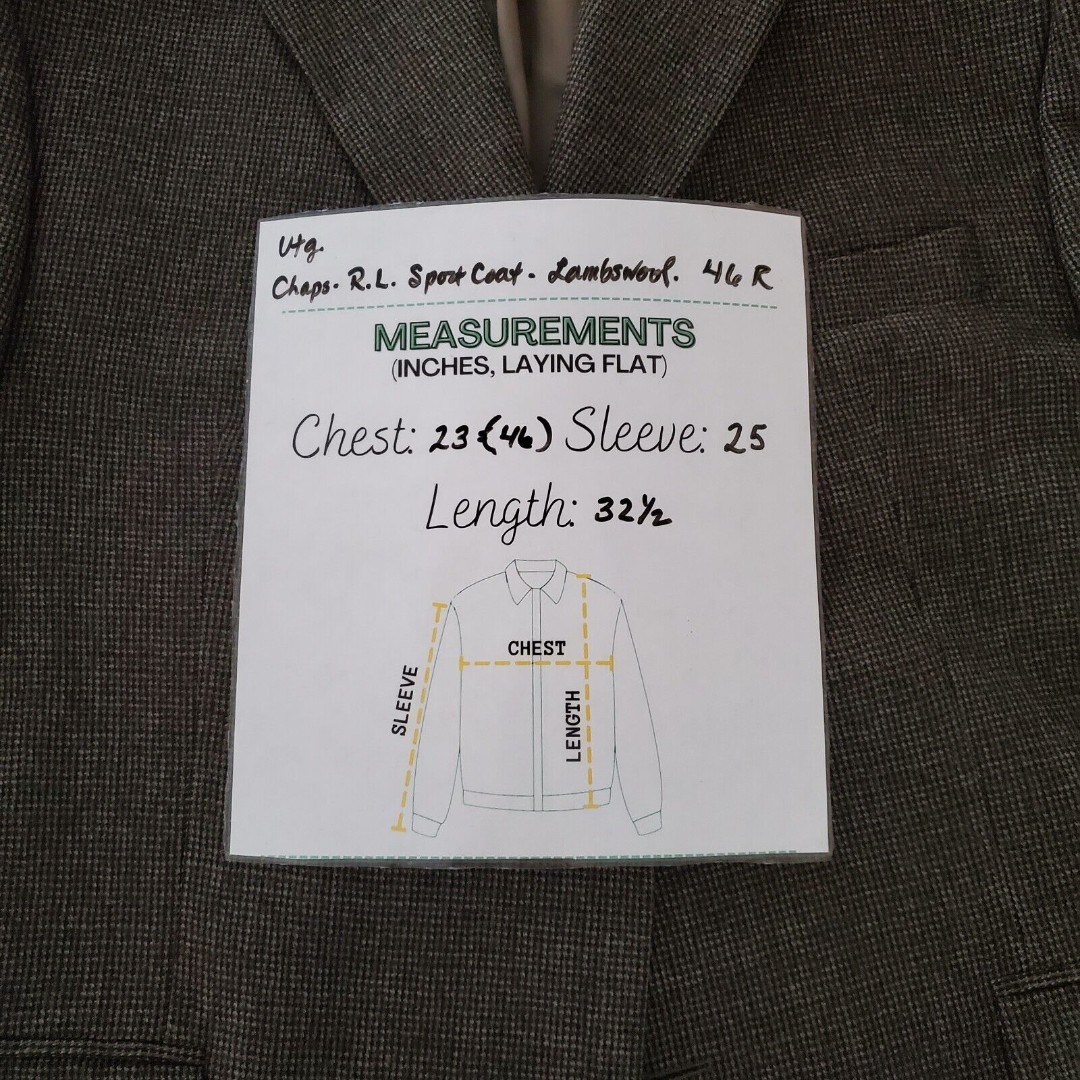 Vtg.
Chaps. R.L. Sport Coat. Lambswool. 46 R
MEASUREMENTS
(INCHES, LAYING FLAT)
Chest: 23 (46) Sleeve: 25
Length: 32½
CHEST
SLEEVE
LENGTH